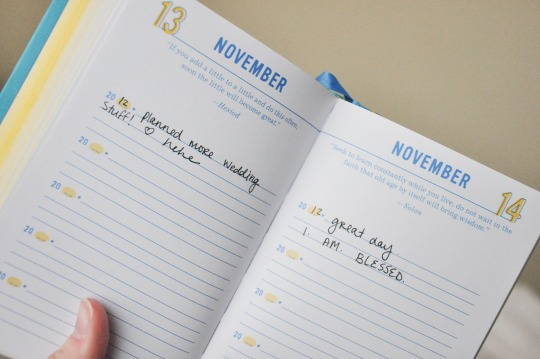 13
NOVEMBER
"If you add a little to a little and do this often,
soon the little will become great."
– Hesiod
20 12. Planned more wedding
Stuff! ♡ hehe
20 •
20 •
20 •
20 •
NOVEMBER
14
"Seek to learn constantly while you live; do not wait in the
faith that old age by itself will bring wisdom."
– Solon
20 12. great day
I. AM. BLESSED.
20 •
20 •
20 •
20 •